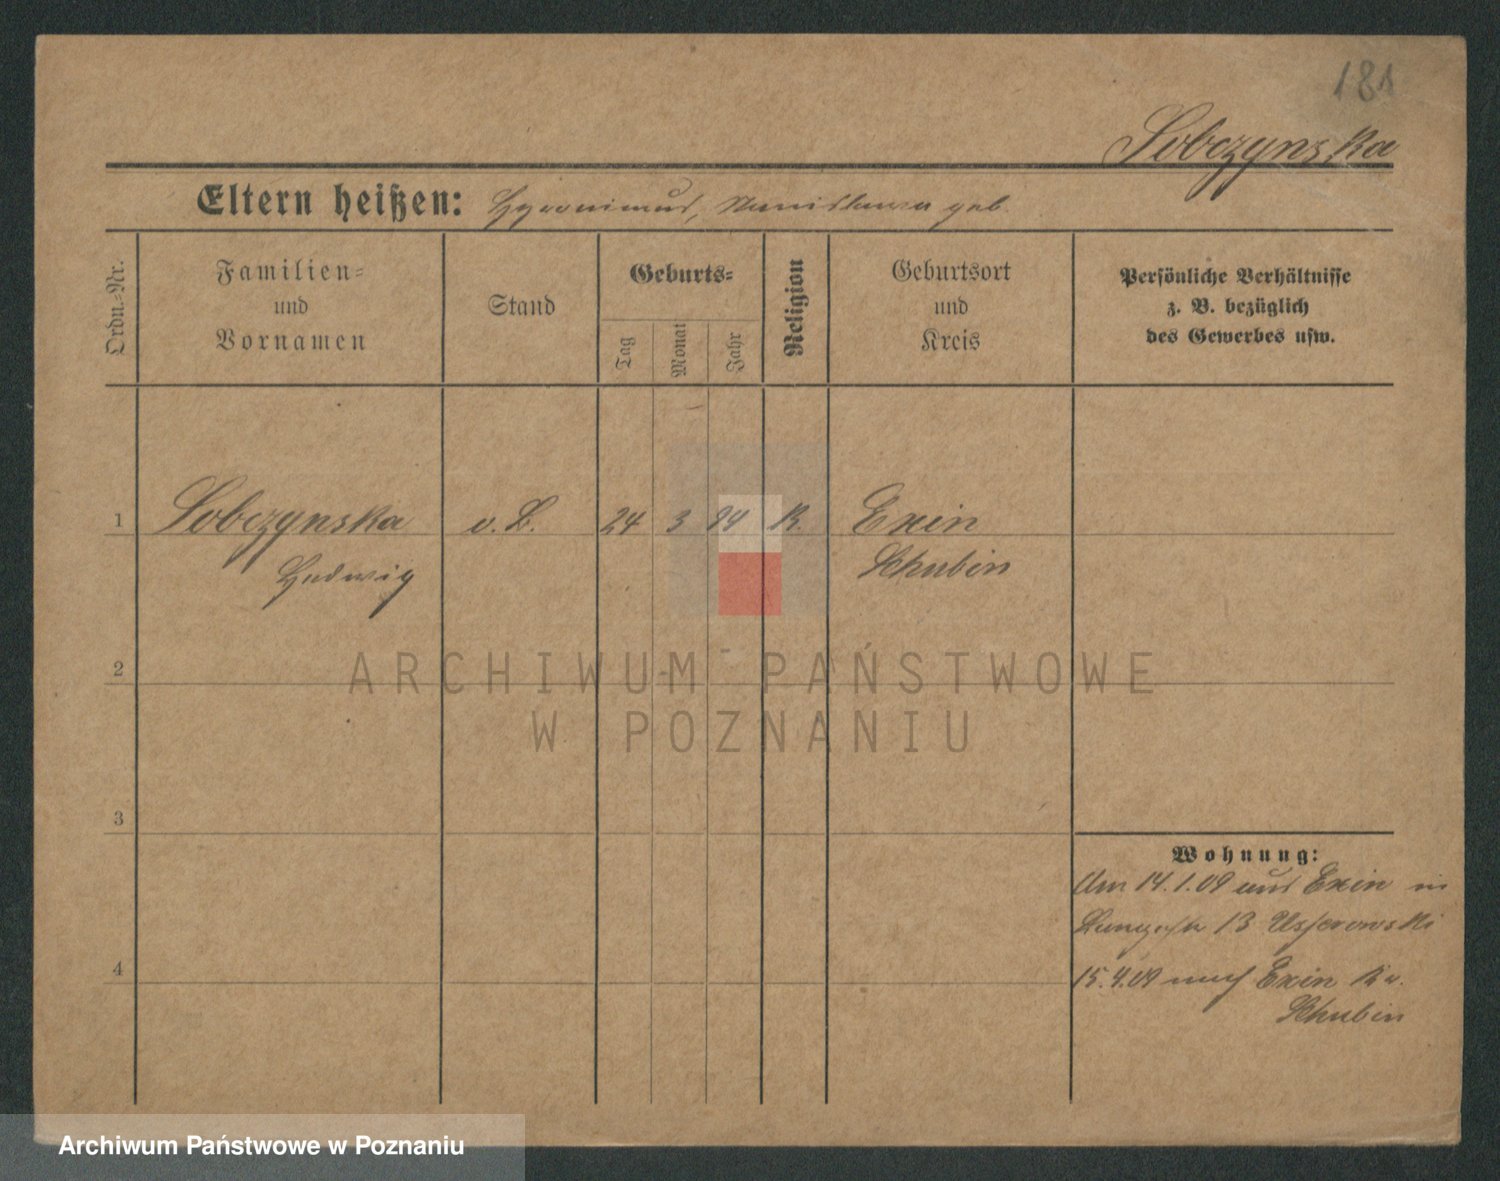 181
Sobczynska
Eltern heißen: Hyronimus, Stanislawa geb.
Ordn.-Nr.
Familien-
und
Vornamen
Stand
Geburts-
Tag
Monat
Jahr
Religion
Geburtsort
und
Kreis
Persönliche Verhältnisse
z. B. bezüglich
des Gewerbes usw.
1 Sobczynska v. L. 24 3 94 K. Exin
Hedwig Schubin
2
3
4
Wohnung:
Am 14.1.09 aus Exin in
13
15.4.09 nach Exin Kr.
Schubin
ARCHIWUM PAŃSTWOWE
W POZNANIU
Archiwum Państwowe w Poznaniu